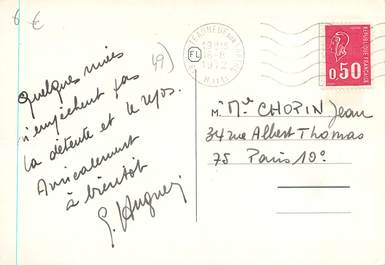 6 €
49)
Quelques nuées
n'empêchent pas
la détente et le repos.
Amicalement
à bientôt
CHATEAUNEUF SUR
16-8
1972
REPUBLIQUE FRANCAISE
0,50
M. Me CHOPIN Jean
34 rue Albert Thomas
75 Paris 10e